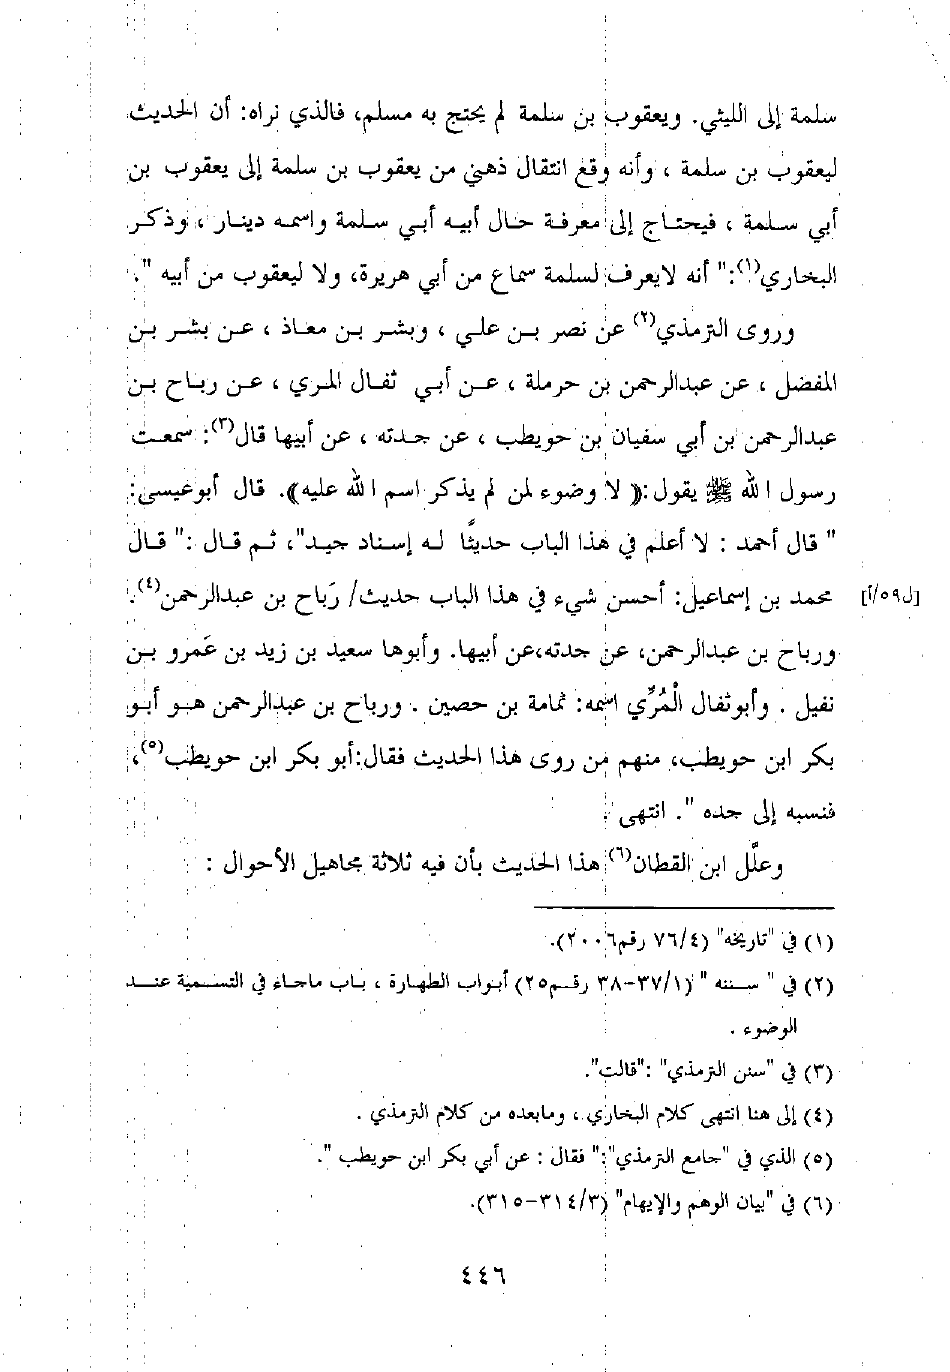 سلمة إلى الليثي. ويعقوب بن سلمة لم يحتج به مسلم، فالذي نراه: أن الحديث
ليعقوب بن سلمة ، وأنه وقع انتقال ذهني من يعقوب بن سلمة إلى يعقوب بن
أبي سلمة ، فيحتاج إلى معرفة حال أبيه أبي سلمة واسمه دينار ، وذكر
البخاري(١):" أنه لايعرف لسلمة سماع من أبي هريرة، ولا ليعقوب من أبيه ".
وروى الترمذي(٢) عن نصر بن علي ، وبشر بن معاذ ، عن بشر بن
المفضل ، عن عبدالرحمن بن حرملة ، عن أبي ثفال المري ، عن رباح بن
عبدالرحمن بن أبي سفيان بن حويطب ، عن جدته ، عن أبيها قال(٣): سمعت
رسول الله ﷺ يقول:﴿ لا وضوء لمن لم يذكر اسم الله عليه﴾. قال أبوعيسى:
" قال أحمد : لا أعلم في هذا الباب حديثًا له إسناد جيد"، ثم قال :" قال
محمد بن إسماعيل: أحسن شيء في هذا الباب حديث/ رَباح بن عبدالرحمن(٤). [ل٥٩/أ]
ورباح بن عبدالرحمن، عن جدته،عن أبيها. وأبوها سعيد بن زيد بن عَمرو بن
نفيل . وأبوثفال الْمُرِّي اسمه: ثمامة بن حصين . ورباح بن عبدالرحمن هو أبو
بكر ابن حويطب، منهم من روى هذا الحديث فقال:أبو بكر ابن حويطب(٥)،
فنسبه إلى جده ". انتهى .
وعلَّل ابن القطان(٦) هذا الحديث بأن فيه ثلاثة مجاهيل الأحوال :
(١) في "تاريخه" (٧٦/٤ رقم٢٠٠٦).
(٢) في " سننه " (٣٧/١-٣٨ رقم٢٥) أبواب الطهارة ، باب ماجاء في التسمية عند
الوضوء .
(٣) في "سنن الترمذي" :"قالت".
(٤) إلى هنا انتهى كلام البخاري ، ومابعده من كلام الترمذي .
(٥) الذي في "جامع الترمذي":" فقال : عن أبي بكر ابن حويطب ".
(٦) في "بيان الوهم والإيهام" (٣١٤/٣-٣١٥).
٤٤٦